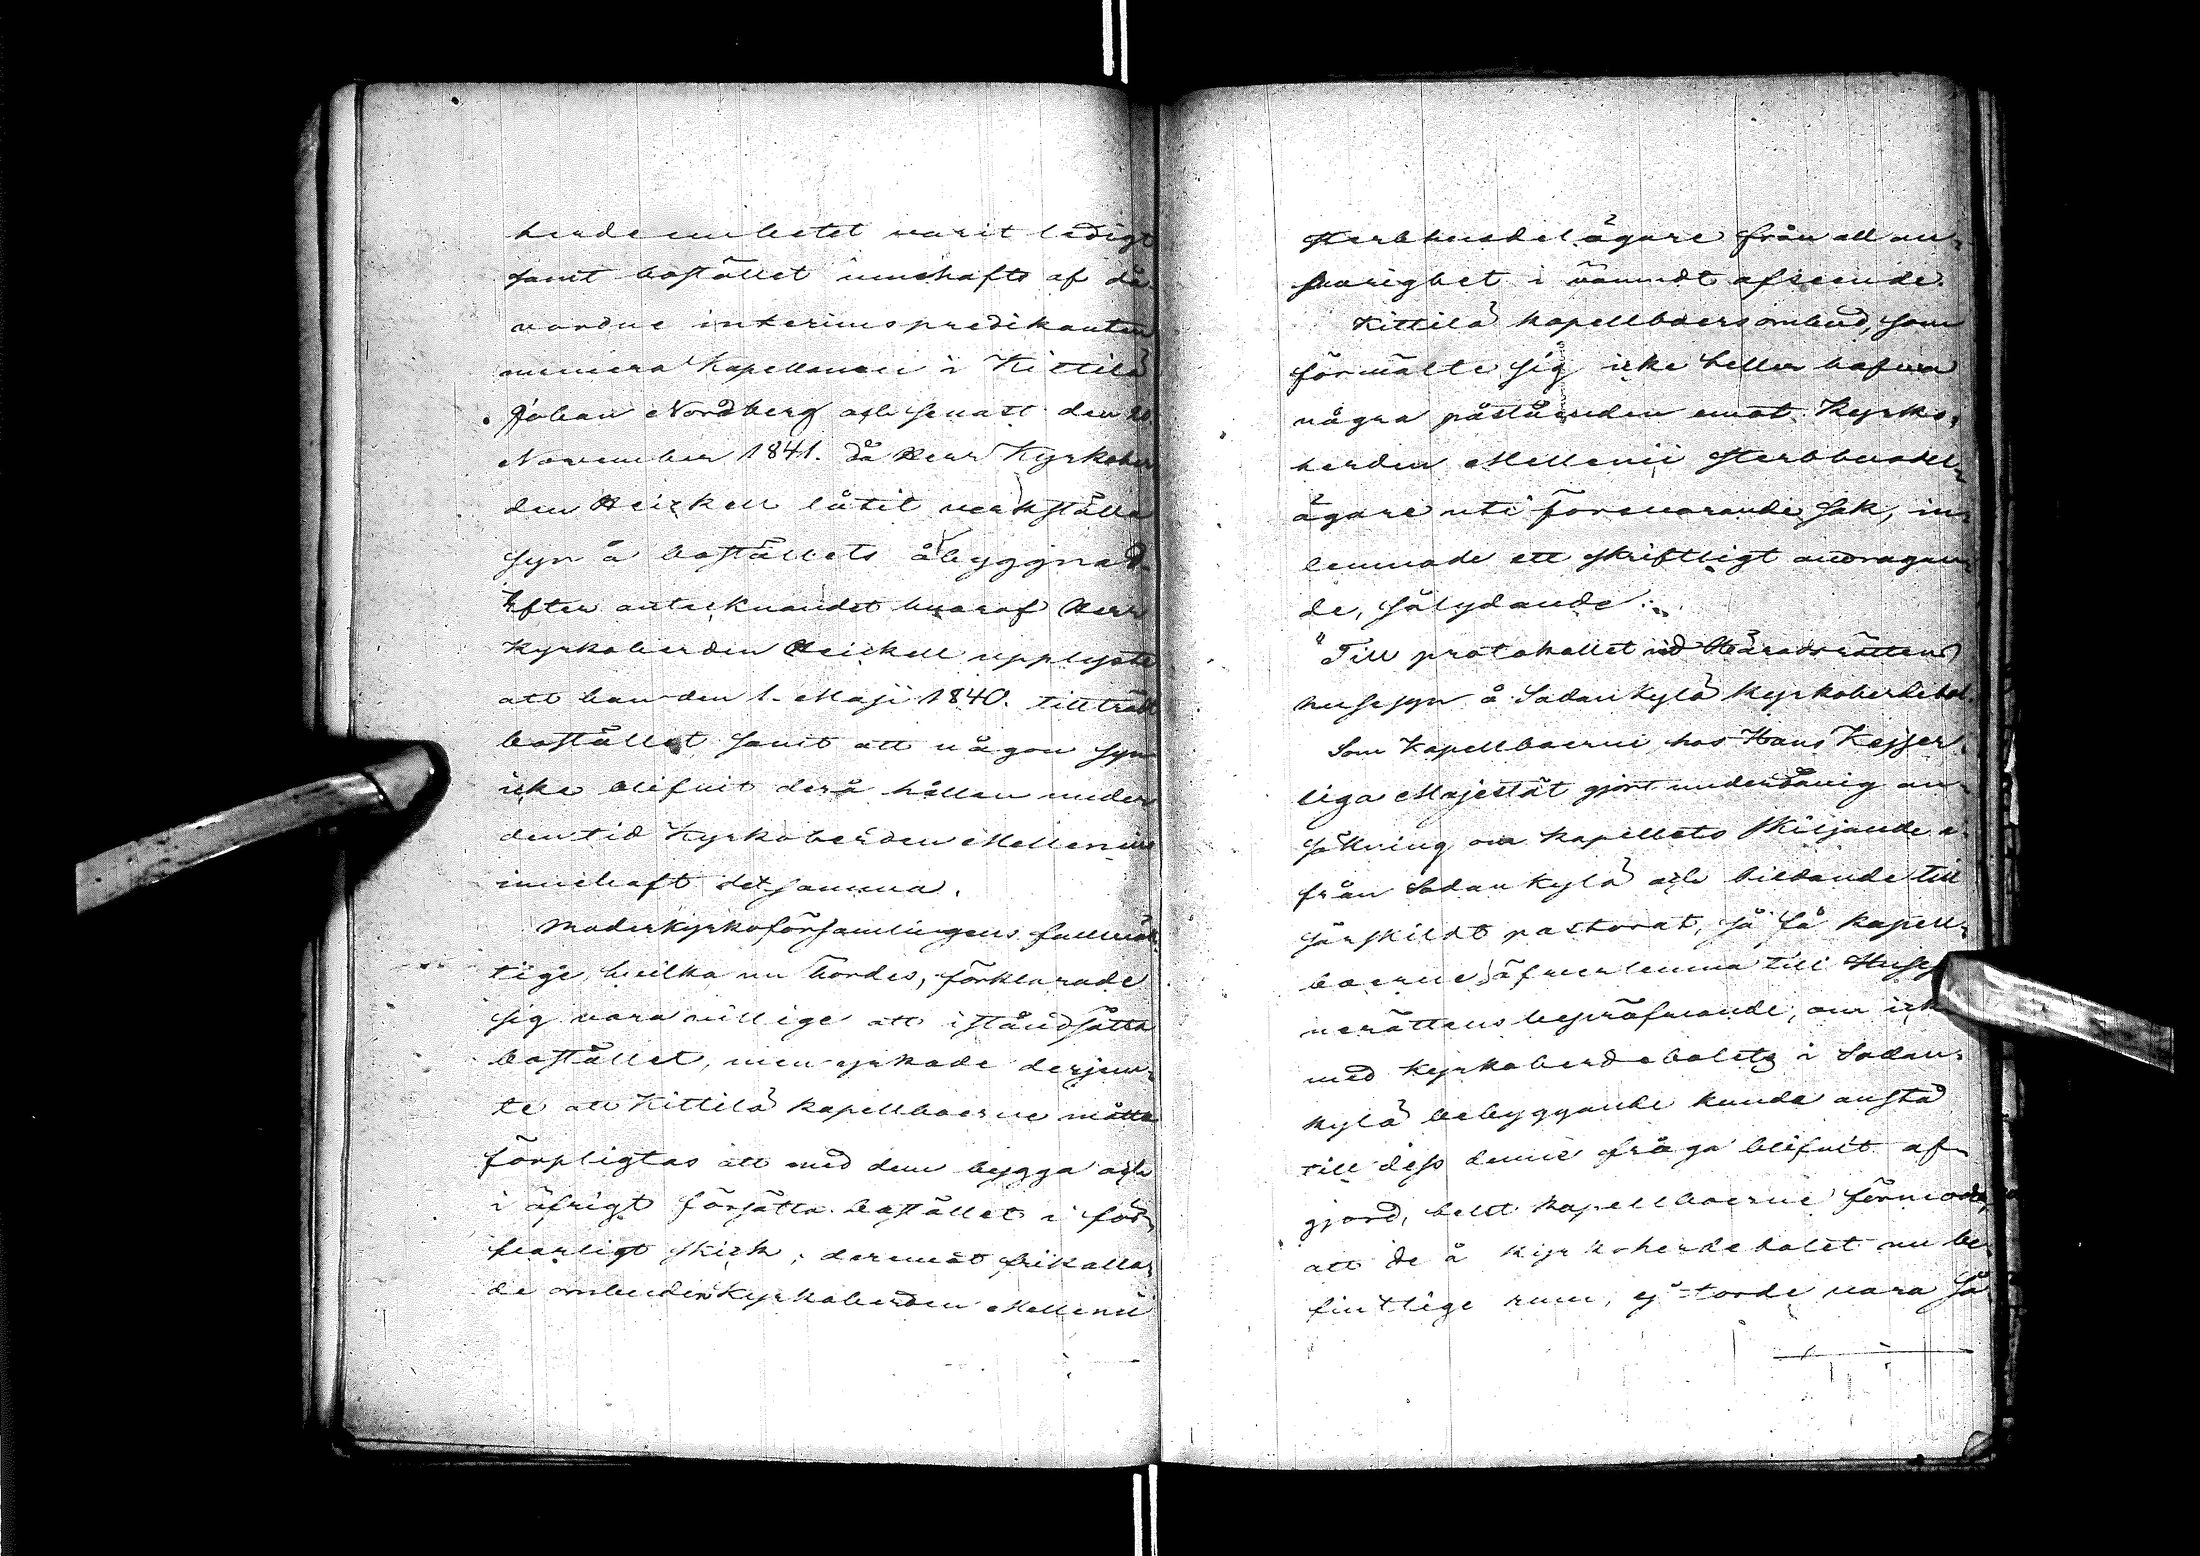 herdeembetet varit ledigt
samt bostället innehafts af då
vordne interimspredikanten
numera Kapellanen i Kittilä
Johan Nordberg och senast den 20.
November 1841. då Herr Kyrkoher
den Heickell låtit verkställa
syn å boställets åbyggnad.
Efter antecknandet hvaraf Herr
Kyrkoherden Heickell upplyste
att han den 1. Maji 1840. tillträdt
bostället samt att någon syn
icke blifvit derå hållen under
den tid Kyrkoherden Mellenius
innehaft detsamma.
Moderkyrkoförsamlingens fullmäk
tige, hvilka nu hördes, förklarade
sig vara villige att iståndsätta
bostället, men yrkade derjem-
te att Kittilä kapellboerne måtte
förpligtas att med dem bygga och
i öfrigt försätta bostället i för-
svarligt skick; deremot frikalla-
de ombuden Kyrkoherden Mellenii
sterbhusdelägare från all an-
svarighet i nämndt afseende.
Kittilä kapellboers ombud, som
förmälte sig icke heller hafva
några påståenden emot Kyrko-
herden Mellenii sterbhusdel-
ägare uti förevarande sak, in-
lemnade ett skriftligt andragan-
de, sålydande:
"Till protokollet vid Häradsrättens
husesyn å Sodankylä Kyrkoherdebol.
Som Kapellboerne hos Hans Kejser-
liga Majestät gjort underdånig an-
sökning om kapellets skiljande
från Sodankylä och bildande till
särskildt pastorat, så få kapell-
boerne äfven lemna till Husesy
nerättens bepröfvande, om icke
med Kyrkoherdebolets i Sodan-
kylä bebyggande kunde anstå
till dess denne fråga blifvit af-
gjord, helst kapellboerne förmoda
att de å Kyrkoherdebolet nu be-
fintlige rum, ej torde vara så